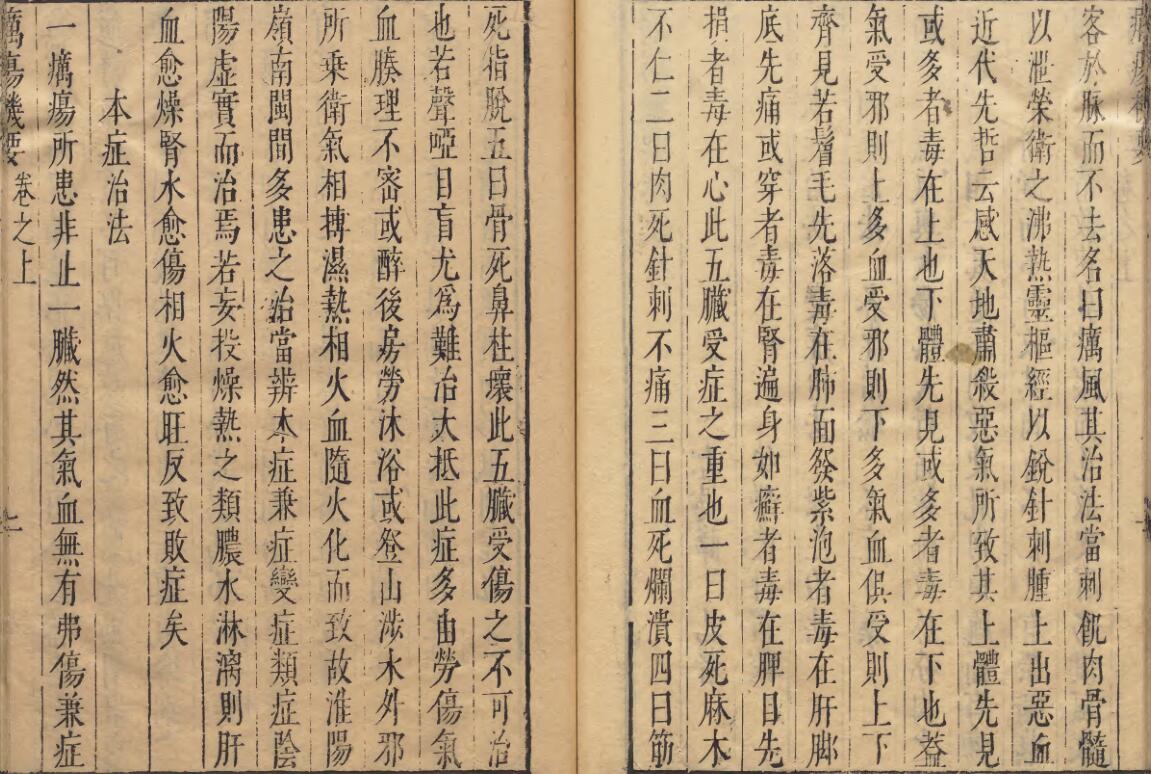 癘瘍機要
客於脉而不去名曰癘風其治法當刺飢肉骨髓
以泄榮衛之沸熱靈樞經以銳針刺腫上出惡血
近代先哲云感天地肅殺惡氣所致其上體先見
或多者毒在上也下體先見或多者毒在下也葢
氣受邪則上多血受邪則下多氣血俱受則上下
齊見若鬚毛先落毒在肺面發紫泡者毒在肝脚
底先痛或穿者毒在腎遍身如癬者毒在脾目先
損者毒在心此五臓受症之重也一曰皮死麻木
不仁二曰肉死針刺不痛三曰血死爛潰四曰筋
死指脫五曰骨死鼻柱壞此五臓受傷之不可治
也若聲啞目盲尤爲難治大抵此症多由勞傷氣
血腠理不密或醉後房勞沐浴或登山涉水外邪
所乗衛氣相搏濕熱相火血隨火化而致故淮陽
嶺南閩間多患之治當辨本症兼症變症類症陰
陽虚實而治焉若妄投燥熱之類膿水淋漓則肝
血愈燥腎水愈傷相火愈旺反致敗症矣
本症治法
一癘瘍所患非止一臓然其氣血無有弗傷兼症
癘瘍機要 卷之上 二